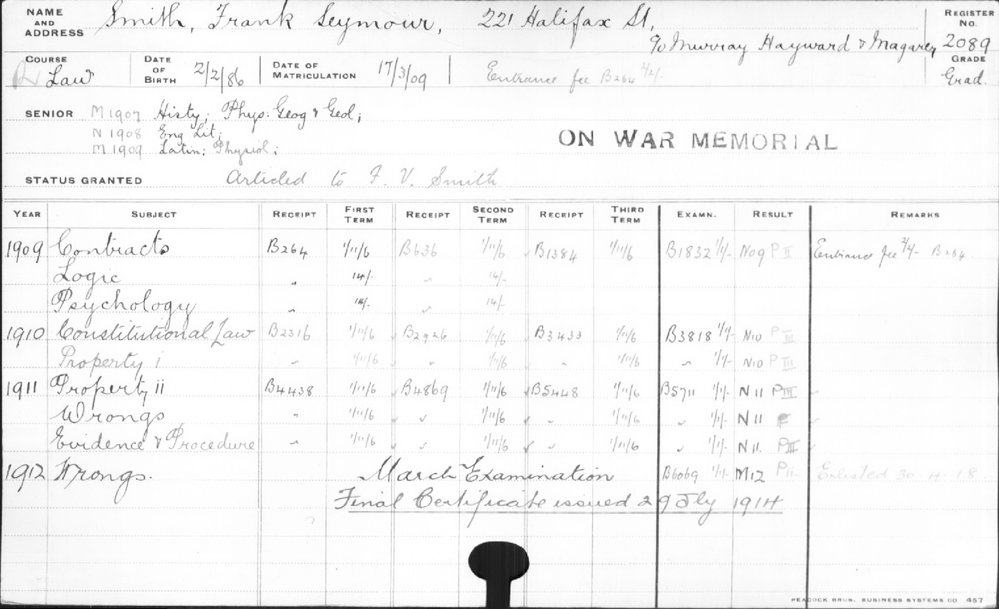 NAME AND ADDRESS Smith, Frank Seymour, 221 Halifax St, REGISTER No. 2089
c/o Murray Hayward & Magarey
COURSE Law DATE OF BIRTH 2/2/86 DATE OF MATRICULATION 17/3/09 Entrance fee B264 2/2/- GRADE Grad.
SENIOR M1907 Histy; Phys: Geog & Geol;
N 1908 Eng Lit;
M 1909 Latin; Physiol;
ON WAR MEMORIAL
STATUS GRANTED Articled to F. V. Smith
YEAR SUBJECT RECEIPT FIRST TERM RECEIPT SECOND TERM RECEIPT THIRD TERM EXAMN. RESULT REMARKS
1909 Contracts B264 1/11/6 B636 1/11/6 B1384 1/11/6 B1832 1/1/- No9 P II Entrance fee 2/2/- B264
Logic " 14/- " 14/-
Psychology " 14/- " 14/-
1910 Constitutional Law B2316 1/11/6 B2926 1/11/6 B3433 1/11/6 B3818 1/1/- N10 P III
Property i " 1/11/6 " 1/11/6 " 1/11/6 " 1/1/- N10 P III
1911 Property ii B4438 1/11/6 B4869 1/11/6 B5448 1/11/6 B5711 1/1/- N11 P III
Wrongs " 1/11/6 " 1/11/6 " 1/11/6 " 1/1/- N11
Evidence & Procedure " 1/11/6 " 1/11/6 " 1/11/6 " 1/1/- N11. P III
1912 Wrongs. March Examination B6069 1/1/- M12 P II Enlisted 30.4.18
Final Certificate issued 29 July 1914
PEACOCK BROS. BUSINESS SYSTEMS CO 457